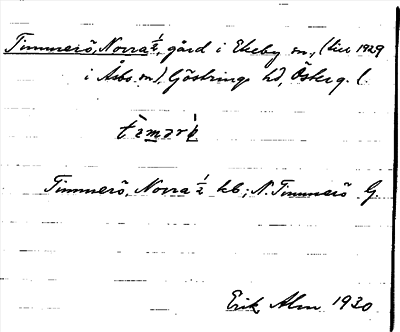 Timmerö, Norra ½, gård i Ekeby sn, (till 1929
i Åsbo sn), Göstrings hd, Österg. l.
Timmerö, Norra ½ kb; N. Timmerö G
Erik Alm 1930